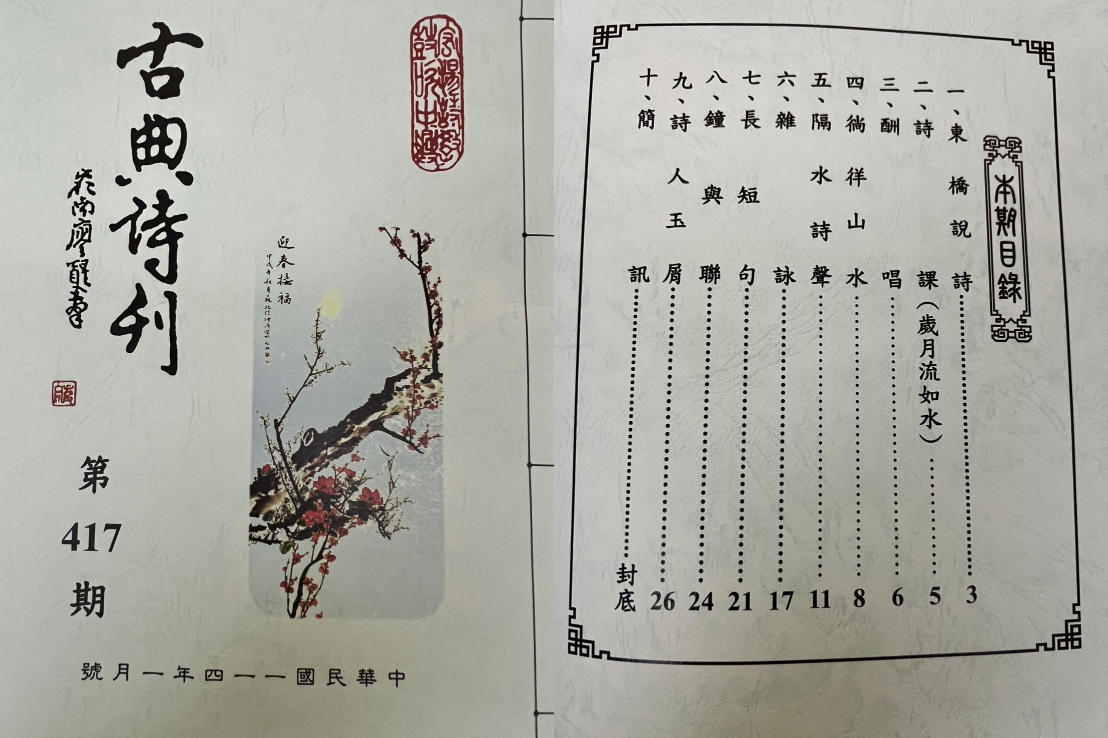 古典詩刊
嶺南廖從雲書
第
417
期
迎春接福
中華民國一一四年一月號
本期目錄
一、東橋說詩……3
二、詩課（歲月流如水）……5
三、酬唱……6
四、徜徉山水……8
五、隔水詩聲……11
六、雜詠……17
七、長短句……21
八、鐘與聯……24
九、詩人玉屑……26
十、簡訊……封底